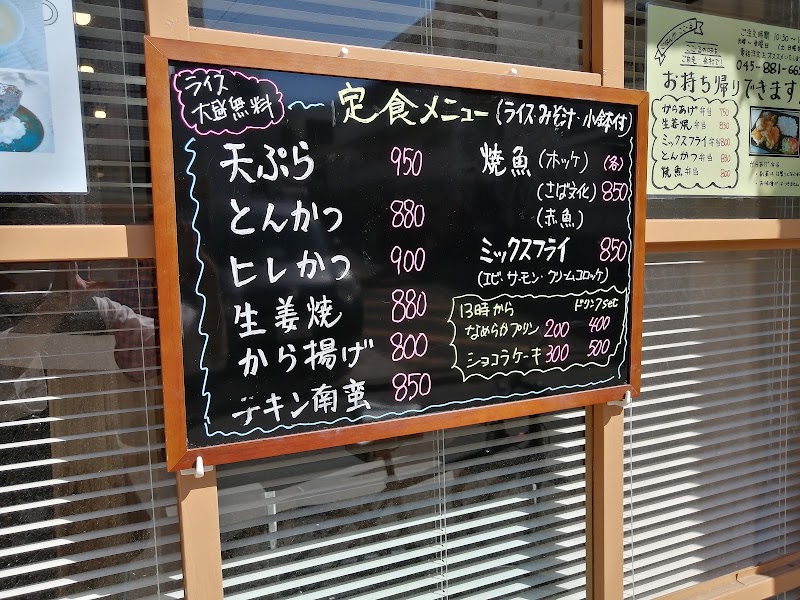 ライス
大盛無料
定食メニュー(ライス・みそ汁・小鉢付)
天ぷら 950
とんかつ 880
ヒレかつ 900
生姜焼 880
から揚げ 800
チキン南蛮 850
焼魚(ホッケ)(各)
(さば文化) 850
(赤魚)
ミックスフライ 850
(エビ・サーモン・クリームコロッケ)
13時から ドリンクset
なめらかプリン 200 400
ショコラケーキ 300 500
ご注文時間 10:30～
045-881-66
お持ち帰りできます
からあげ弁当 750
生姜焼弁当 830
ミックスフライ弁当 800
とんかつ弁当 830
焼魚弁当 800